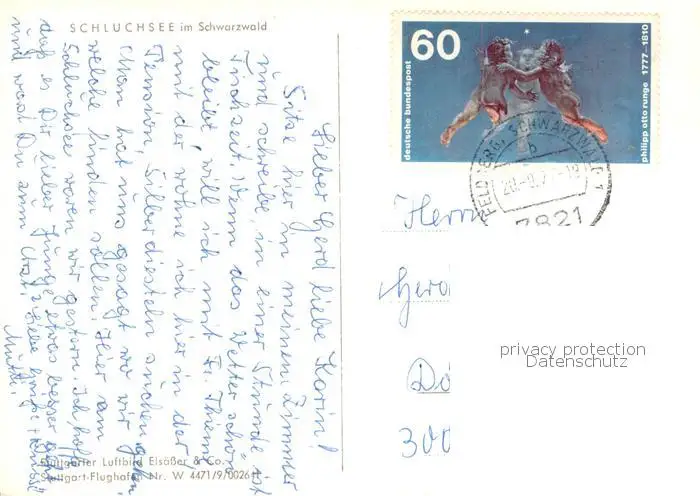 SCHLUCHSEE im Schwarzwald
Lieber Gerd liebe Karin!
Sitze hier in meinem Zimmer
und schreibe, in einer Stunde ist
Tischzeit. Wenn das Wetter schön
bleibt will ich mit Fr. Thieme
mit der wohne ich hier in der
Pension, Silberdisteln suchen gehn
Man hat uns gesagt wo wir
welche finden sollen. Hier am
Schluchsee waren wir gestern. Ich hoffe
daß es Dir lieber Junge etwas besser geht
und warst Du zum Arzt? Liebe Grüße + Küsse
Mutti.
Stuttgarter Luftbild Elsäßer & Co.
Stuttgart-Flughafen Nr. W 4471/9/0026
60
deutsche bundespost
philipp otto runge 1777–1810
FELDBERG, SCHWARZWALD 1
b
20.-9.77-18
7821
Herrn
Gerd
Dö
300
privacy protection
Datenschutz